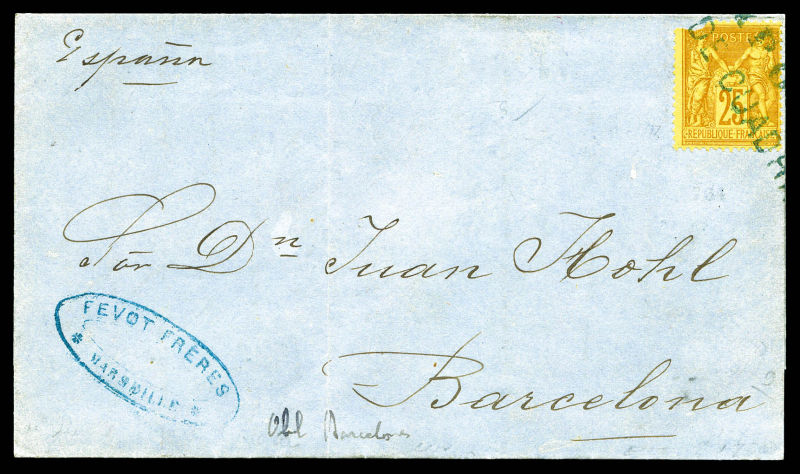 España
POSTES
25
REPUBLIQUE FRANÇAISE
Sōr Dn Juan Hohl
Barcelona
FEVOT FRÈRES
MARSEILLE
Obl Barcelone